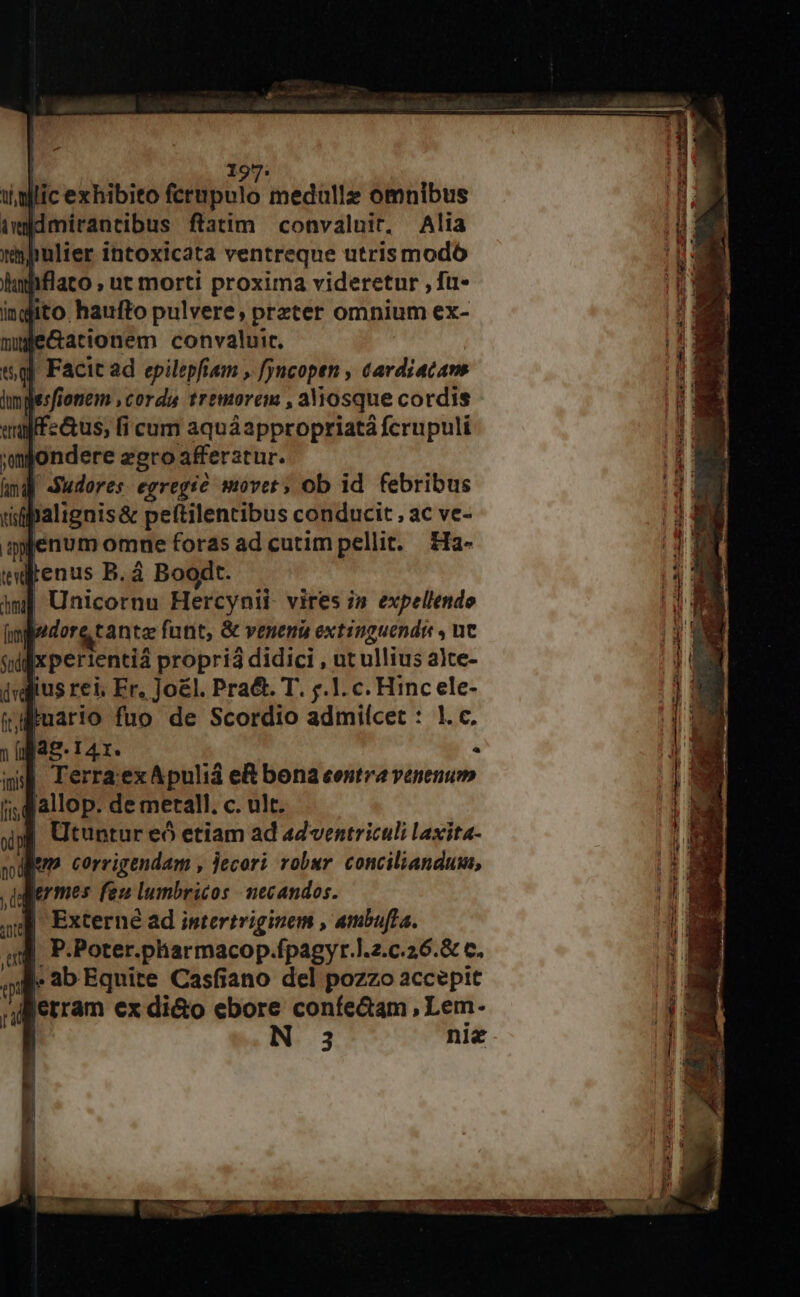 197.
lic exhibito ſcrupulo medullæ omnibus
dmirantibus ſtatim convaluit. Alia
mulier intoxicata ventreque utris modò
inflato, ut morti proxima videretur, ſu-
ito hauſto pulvere, præter omnium ex-
ectationem convaluit.
Facit ad epilepſiam, ſyncopen, cardiacam
esſionem, cordis tremorem, aliosque cordis
ffectus, ſi cum aquâ appropriatâ ſcrupuli
ondere ægro afferatur.
Sudores egregiè movet, ob id febribus
malignis & peſtilentibus conducit, ac ve-
enum omne foras ad cutim pellit. Ha-
tenus B. á Boodt.
Unicornu Hercynii vires in expellendo
udore tantæ ſunt, & venenis extinguendis, ut
xperientiâ propriâ didici, ut ullius alte-
ius rei. Er. Joël. Pract. T. 5. l. c. Hinc ele-
tuario ſuo de Scordio admiſcet: l. c.
pag. 141.
Terra ex Apuliâ eſt bona contra venenum
Fallop. de metall. c. ult.
Utuntur eô etiam ad adventriculi laxita-
tem corrigendam, jecori robur conciliandum,
vermes ſeu lumbricos necandos.
Externè ad intertriginem, ambuſta.
P. Poter. pharmacop. ſpagyr. l. 2. c. 26. & c.
ab Equite Casſiano del pozzo accepit
erram ex dicto ebore confectam, Lem-
N 3 niæ